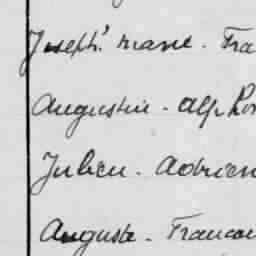 Joseph' marie. Fra
Augustin. alphon
Julien. adrien
Auguste. Francoi